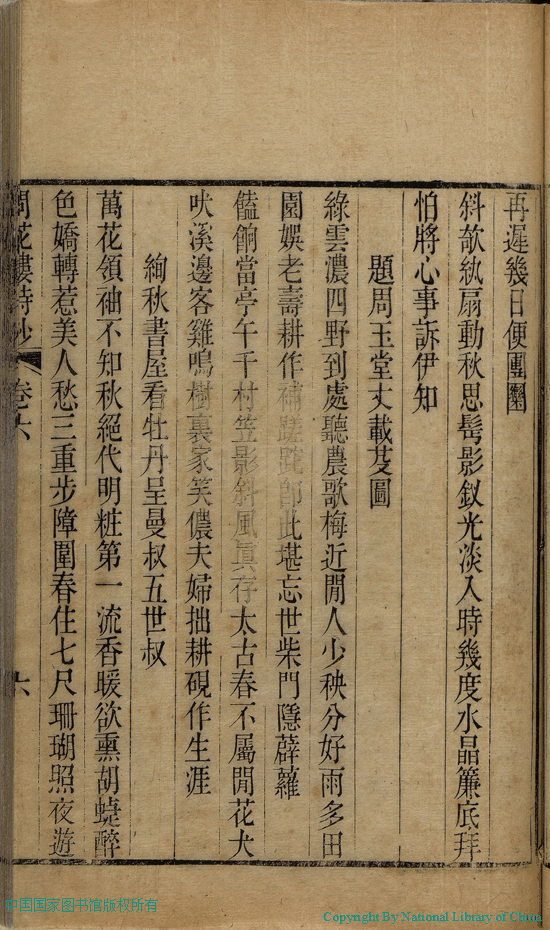 再遲幾日便團圞
斜欹紈扇動秋思髩影釵光淡入時幾度水晶簾底拜
怕將心事訴伊知
題周玉堂丈載芟圖
綠雲濃四野到處聽農歌梅近閒人少秧分好雨多田
園娛老壽耕作補蹉跎卽此堪忘世柴門隱薜蘿
饁餉當亭午千村笠影斜風眞存太古春不屬閒花犬
吠溪邊客雞鳴樹裏家笑儂夫婦拙耕硯作生涯
絢秋書屋看牡丹呈曼叔五世叔
萬花領袖不知秋絕代明粧第一流香暖欲熏胡蜨醉
色嬌轉惹美人愁三重步障圍春住七尺珊瑚照夜遊
問花樓詩鈔 卷六 六
中国国家图书馆版权所有
Copyright By National Library of China